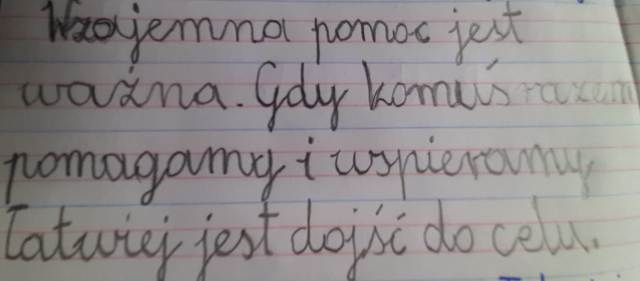 Wzajemna pomoc jest
ważna. Gdy komuś razem
pomagamy i wspieramy
łatwiej jest dojść do celu.